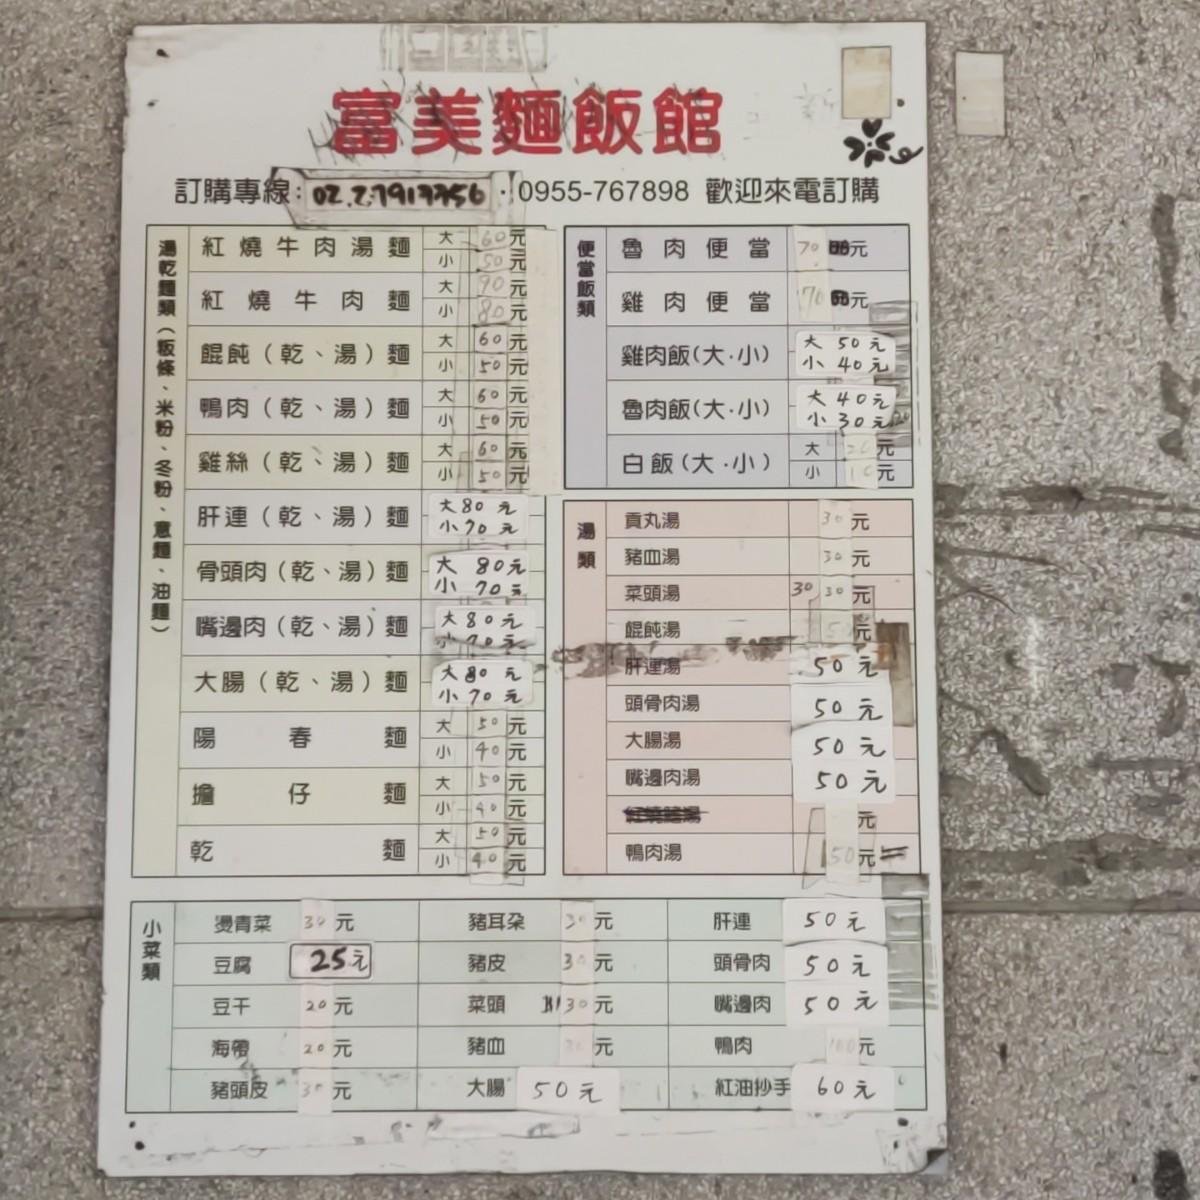 富美麵飯館
訂購專線: 02.27917756 · 0955-767898 歡迎來電訂購
湯乾麵類(粄條、米粉、冬粉、意麵、油麵)
紅燒牛肉湯麵 大 60元 小 50元
紅燒牛肉麵 大 90元 小 80元
餛飩(乾、湯)麵 大 60元 小 50元
鴨肉(乾、湯)麵 大 60元 小 50元
雞絲(乾、湯)麵 大 60元 小 50元
肝連(乾、湯)麵 大80元 小70元
骨頭肉(乾、湯)麵 大 80元 小 70元
嘴邊肉(乾、湯)麵 大80元 小70元
大腸(乾、湯)麵 大80元 小70元
陽春麵 大 50元 小 40元
擔仔麵 大 50元 小 40元
乾麵 大 50元 小 40元
便當飯類
魯肉便當 70元
雞肉便當 70元
雞肉飯(大·小) 大 50元 小 40元
魯肉飯(大·小) 大40元 小30元
白飯(大·小) 大 20元 小 10元
湯類
貢丸湯 30元
豬血湯 30元
菜頭湯 30 30元
餛飩湯 元
肝連湯 50元
頭骨肉湯 50元
大腸湯 50元
嘴邊肉湯 50元
元
鴨肉湯 50元
小菜類
燙青菜 30元 豬耳朵 30元 肝連 50元
豆腐 25元 豬皮 30元 頭骨肉 50元
豆干 20元 菜頭 30元 嘴邊肉 50元
海帶 20元 豬血 30元 鴨肉 100元
豬頭皮 30元 大腸 50元 紅油抄手 60元